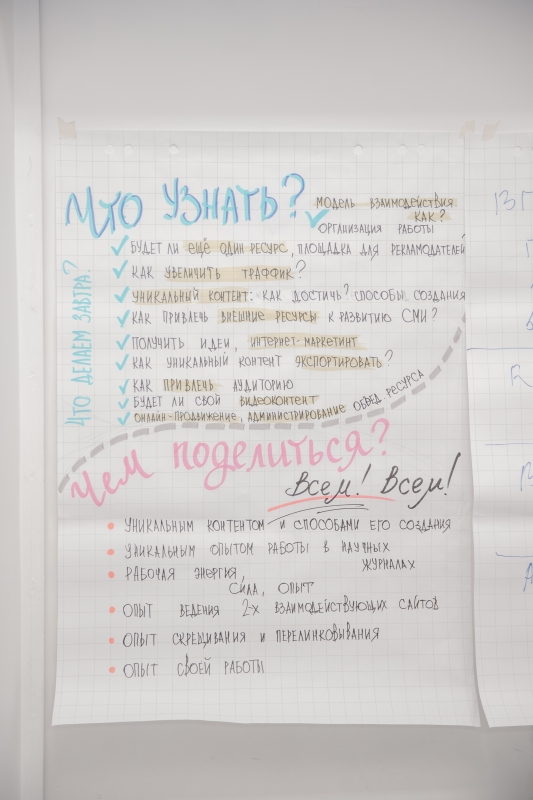 Что узнать?
модель взаимодействия
как?
организация работы
Будет ли ещё один ресурс, площадка для рекламодателей
Как увеличить траффик?
Уникальный контент: как достичь? способы создания
Как привлечь внешние ресурсы к развитию СМИ?
Получить идеи, интернет-маркетинг
Как уникальный контент экспортировать?
Как привлечь аудиторию
Будет ли свой видеоконтент
Онлайн-продвижение, администрирование объед. ресурса
Что делаем завтра?
Чем поделиться?
Всем! Всем!
Уникальным контентом и способами его создания
Уникальным опытом работы в научных
журналах
Рабочая энергия,
сила, опыт
Опыт ведения 2-х взаимодействующих сайтов
Опыт скрещивания и перелинковывания
Опыт своей работы